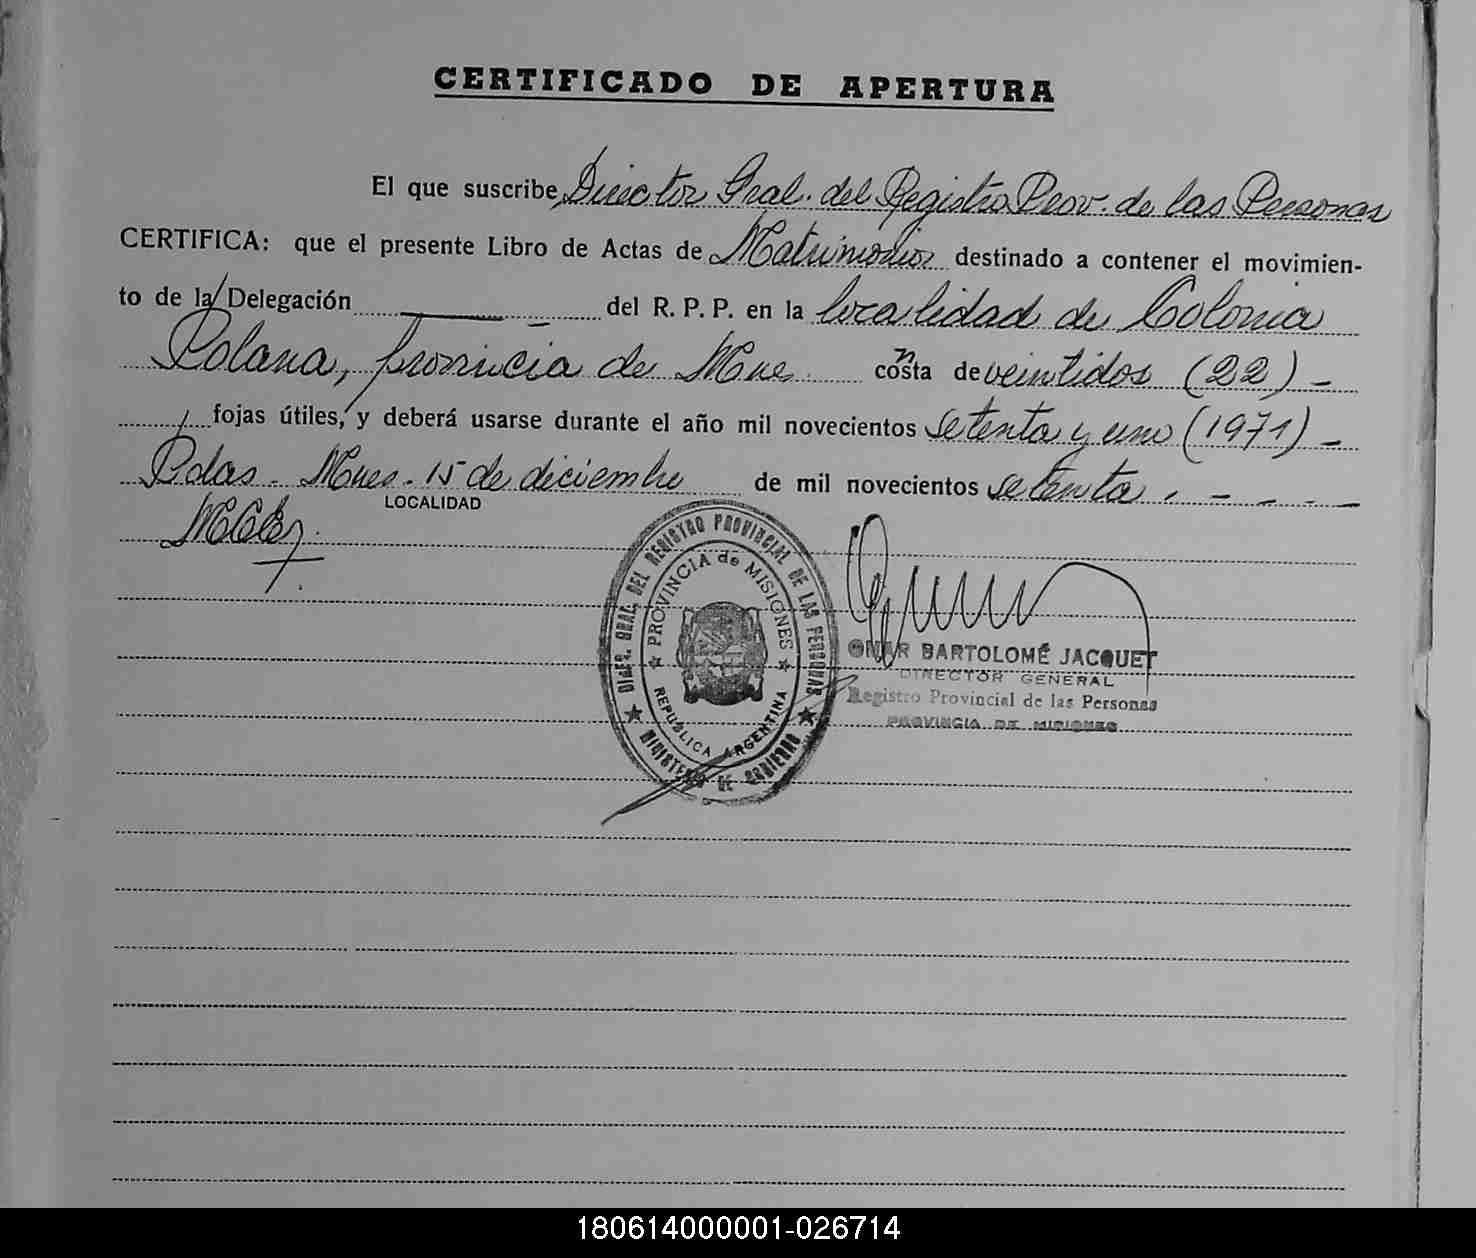 CERTIFICADO DE APERTURA
El que suscribe Director Gral. del Registro Prov. de las Personas
CERTIFICA: que el presente Libro de Actas de Matrimonios destinado a contener el movimien-
to de la Delegación del R. P. P. en la localidad de Colonia
Polana, provincia de Mnes consta de veintidos (22) -
fojas útiles, y deberá usarse durante el año mil novecientos setenta y uno (1971) -
Pdas. Mnes. 15 de diciembre de mil novecientos setenta. - - - -
LOCALIDAD
DIREC. GRAL. DEL REGISTRO PROVINCIAL DE LAS PERSONAS
PROVINCIA de MISIONES
REPUBLICA ARGENTINA
MINISTERIO DE GOBIERNO
OMAR BARTOLOMÉ JACQUET
DIRECTOR GENERAL
Registro Provincial de las Personas
PROVINCIA DE MISIONES
180614000001-026714